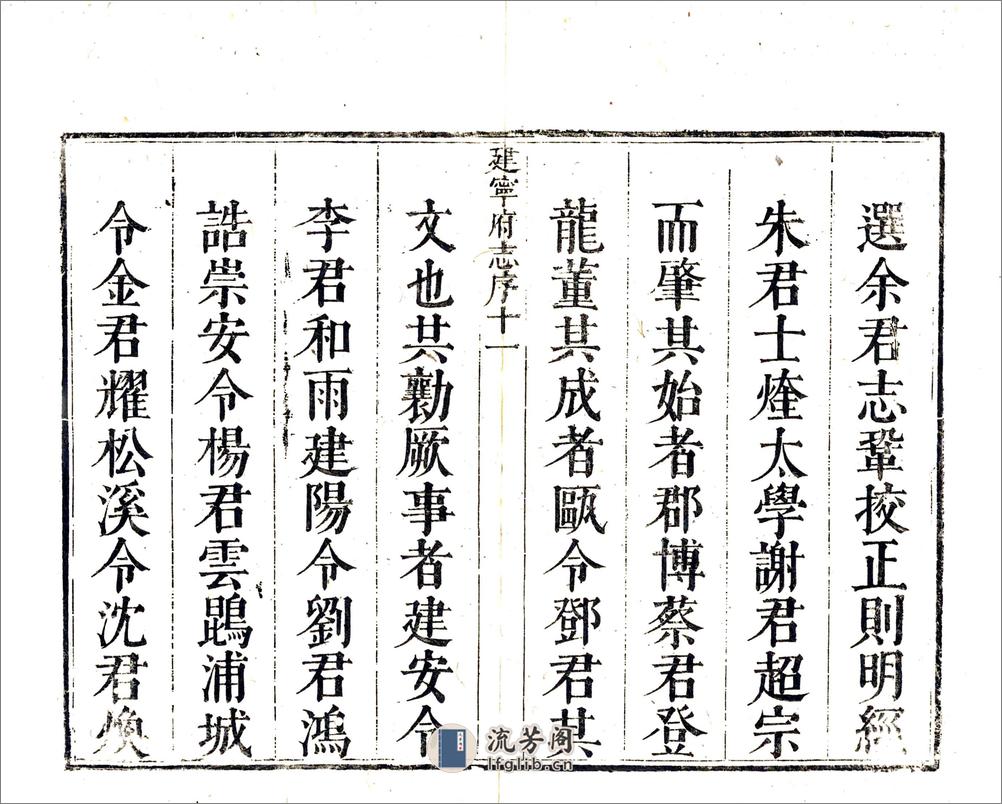 選余君志鞏挍正則明經
朱君士煃太學謝君超宗
而肇其始者郡博蔡君登
龍董其成者甌令鄧君其
建寧府志序十一
文也共勷厥事者建安令
李君和雨建陽令劉君鴻
誥崇安令楊君雲鵾浦城
令金君耀松溪令沈君煥
流芳阁
lfglib.cn